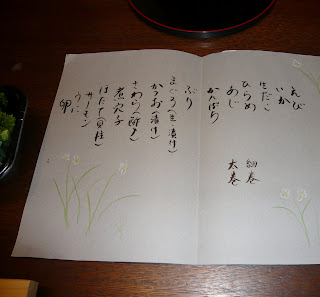 えび
いか
生だこ
ひらめ
あじ
かんぱち
細巻
太巻
ぶり
まぐろ(生・漬け)
かつお(漬け)
さわら(酢〆)
煮穴子
ほたて(貝柱)
サーモン
うに
卵